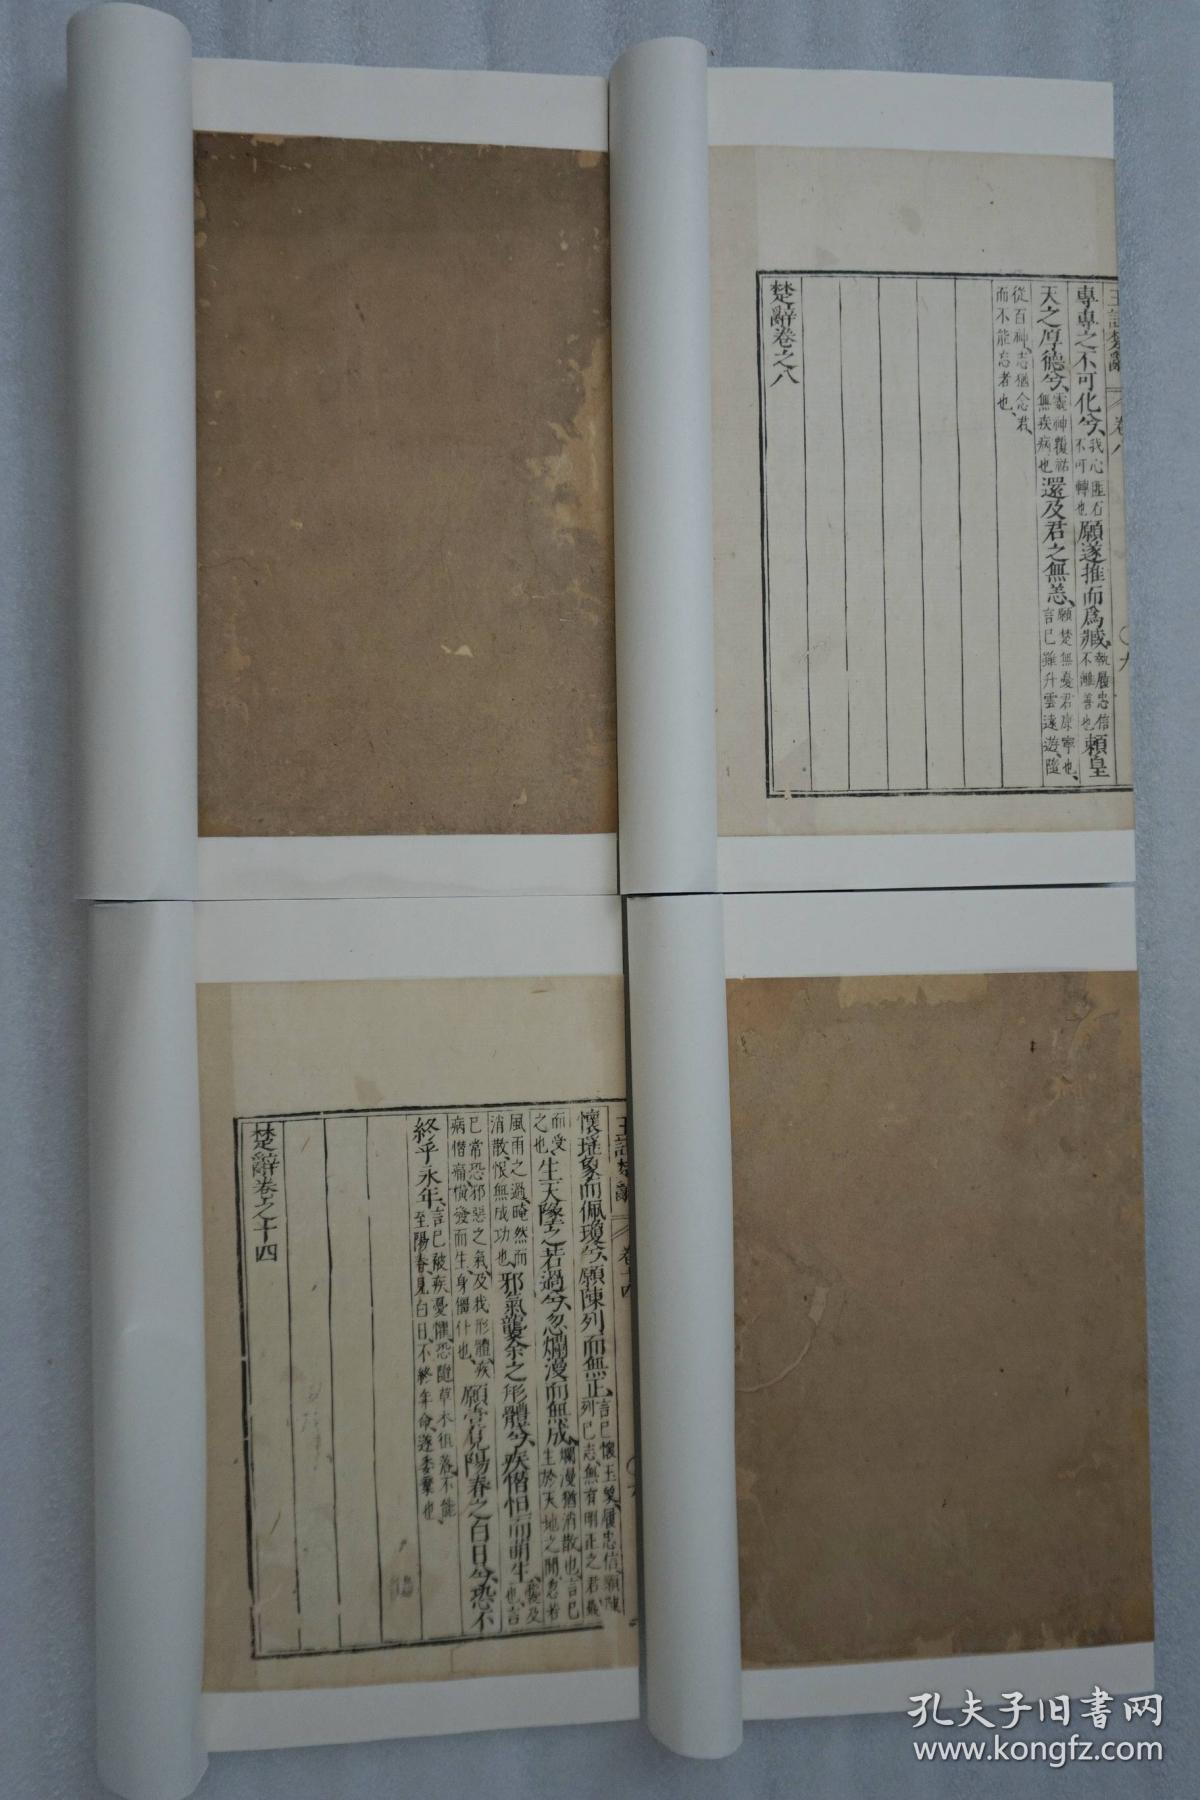 王註楚辭 卷八 〇九
專專之不可化兮、我心匪石不可轉也願遂推而爲臧、執履忠信不離善也賴皇
天之厚德兮、靈神覆祐無疾病也還及君之無恙、願楚無憂君康寧也、言己雖升雲遠遊、隨
從百神、志猶念君、而不能忘者也、
楚辭卷之八
王註楚辭 卷十四
懷瑤象而佩瓊兮、願陳列而無正、言己懷玉象、履忠信、願陳列己志、無有明正之君、聽
而受之也、生天墬之若過兮、忽爛漫而無成、爛漫猶消散也、言己生於天地之間、忽若
風雨之過、晻然而消散、恨無成功也、邪氣襲余之形體兮、疾憯怛而萌生、襲及也、言
己常恐邪惡之氣、及我形體、疾病憯痛橫發而生、身僵仆也、願壹見陽春之白日兮、恐不
終乎永年、言己被疾憂懼、恐隨草木徂落、不能至陽春見白日、不終年命、遂委棄也、
楚辭卷之十四
孔夫子旧書网
www.kongfz.com